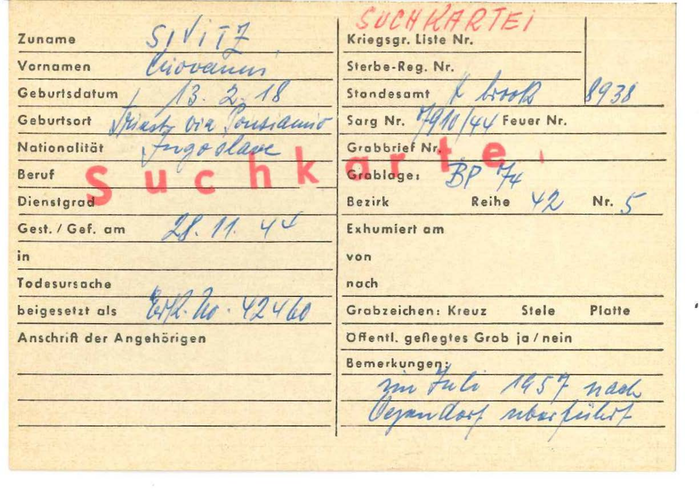 SUCHKARTEI
Zuname SIVITZ
Vornamen Giovanni
Geburtsdatum 13.2.18
Geburtsort Triest, via
Nationalität Jugoslave
Beruf
Dienstgrad
Gest. / Gef. am 28.11.44
in
Todesursache
beigesetzt als No. 42460
Anschrift der Angehörigen
Suchkartei
Kriegsgr. Liste Nr.
Sterbe-Reg. Nr.
Standesamt brook 8938
Sarg Nr. 7910/44 Feuer Nr.
Grabbrief Nr.
Grablage: BP 74
Bezirk Reihe 42 Nr. 5
Exhumiert am
von
nach
Grabzeichen: Kreuz Stele Platte
Öffentl. geflegtes Grab ja / nein
Bemerkungen:
im Juli 1957 nach
Ojendorf überführt